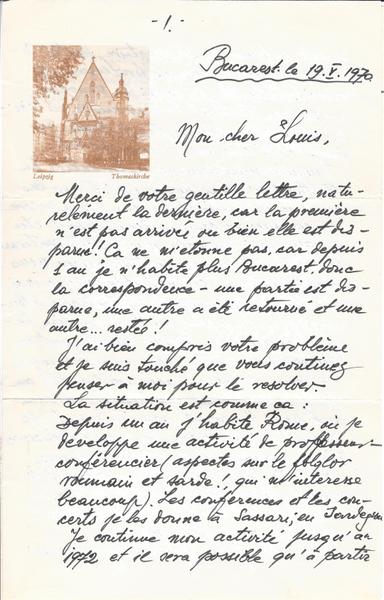 - 1. -
Bucarest le 19.V.1970
Leipzig Thomaskirche
Mon cher Louis,
Merci de votre gentille lettre, natu-
relément la dernière, car la première
n'est pas arrivée ou bien elle est dis-
parue! Ça ne m'étonne pas, car depuis
1 an je n'habite plus Bucarest, donc
la correspondence - une partie est dis-
parue, une autre a été retourné et une
autre... restée!
J'ai bien compris votre problème
et je suis touché que vous continez
penser à moi pour le resolver.
La situation est comme ça:
Depuis un an j'habite Rome, où je
développe une activité de professeur-
conférencier (aspectes sur le folglor
roumain et sarde!, qui m'interesse
beaucoup). Les conférences et les con-
certs je les donne à Sassari, en Sardegna
Je continue mon activité jusqu'àu
1972 et il sera possible qu'à partir